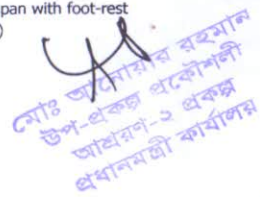 pan with foot-rest
)
মোঃ আনোয়ার রহমান
উপ-প্রকল্প প্রকৌশলী
আশ্রয়ণ-২ প্রকল্প
প্রধানমন্ত্রী কার্যালয়